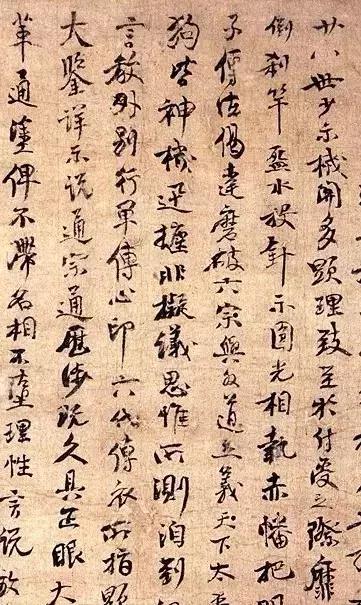 廿八世少示機關多顯理致至於付受之際靡
倒剎竿盌水投針示圓光相執赤幡把明
子傳法偈達磨破六宗與外道立義天下太平
狗皆神機迅捷非擬議思惟所測洎到
言教外別行單傳心印六代傳衣所指顯
大鑒詳示說通宗通歷涉既久具正眼大
革通塗俾不滯名相不墮理性言說放